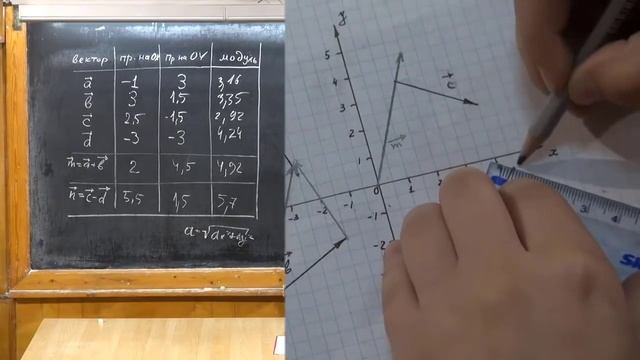 вектор пр. на OX пр. на OY модуль
a⃗ -1 3 3,16
b⃗ 3 1,5 3,35
c⃗ 2,5 -1,5 2,92
d⃗ -3 -3 4,24
m⃗=a⃗+b⃗ 2 4,5 4,92
n⃗=c⃗-d⃗ 5,5 1,5 5,7
y
5
4
3
2
1
c⃗
m⃗
x
-3 -2 0 1 2
-1
-2
b⃗
3 4